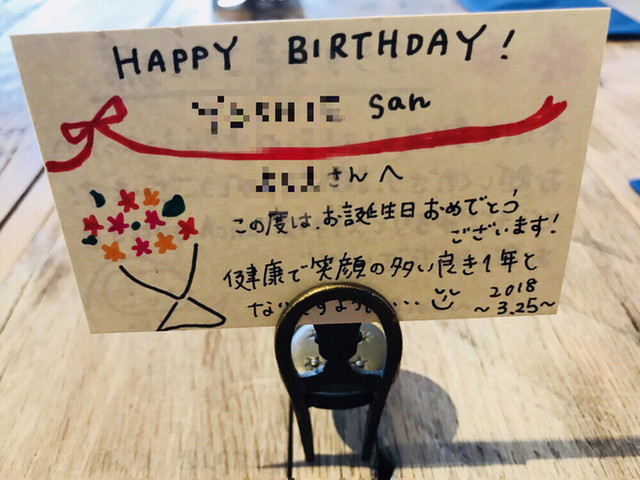 HAPPY BIRTHDAY!
san
さんへ
この度は、お誕生日おめでとう
ございます!
健康で笑顔の多い良き1年と
2018
~3.25~